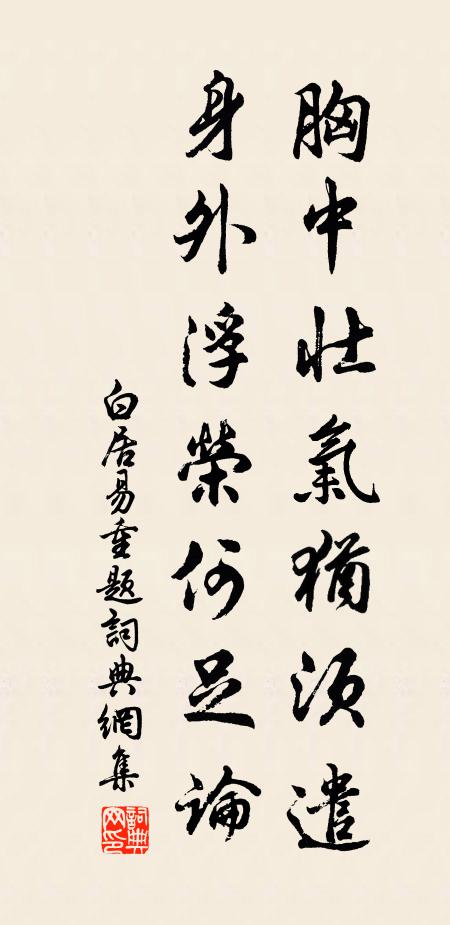 胸中壯氣猶須遣
身外浮榮何足論
白居易重題詞典網集
詞典网印